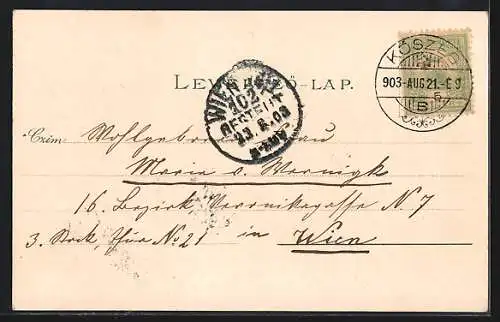 KŐSZEG
903-AUG.21.-
5
B
LEVELEZŐ-LAP.
WIEN
102
BESTELLT
23.8.03
Czim: Wohlgeboren Frau
Maria v. Wernigk
16. Bezirk Veronikagasse N. 7
3. Stock, Thür No. 21 in Wien